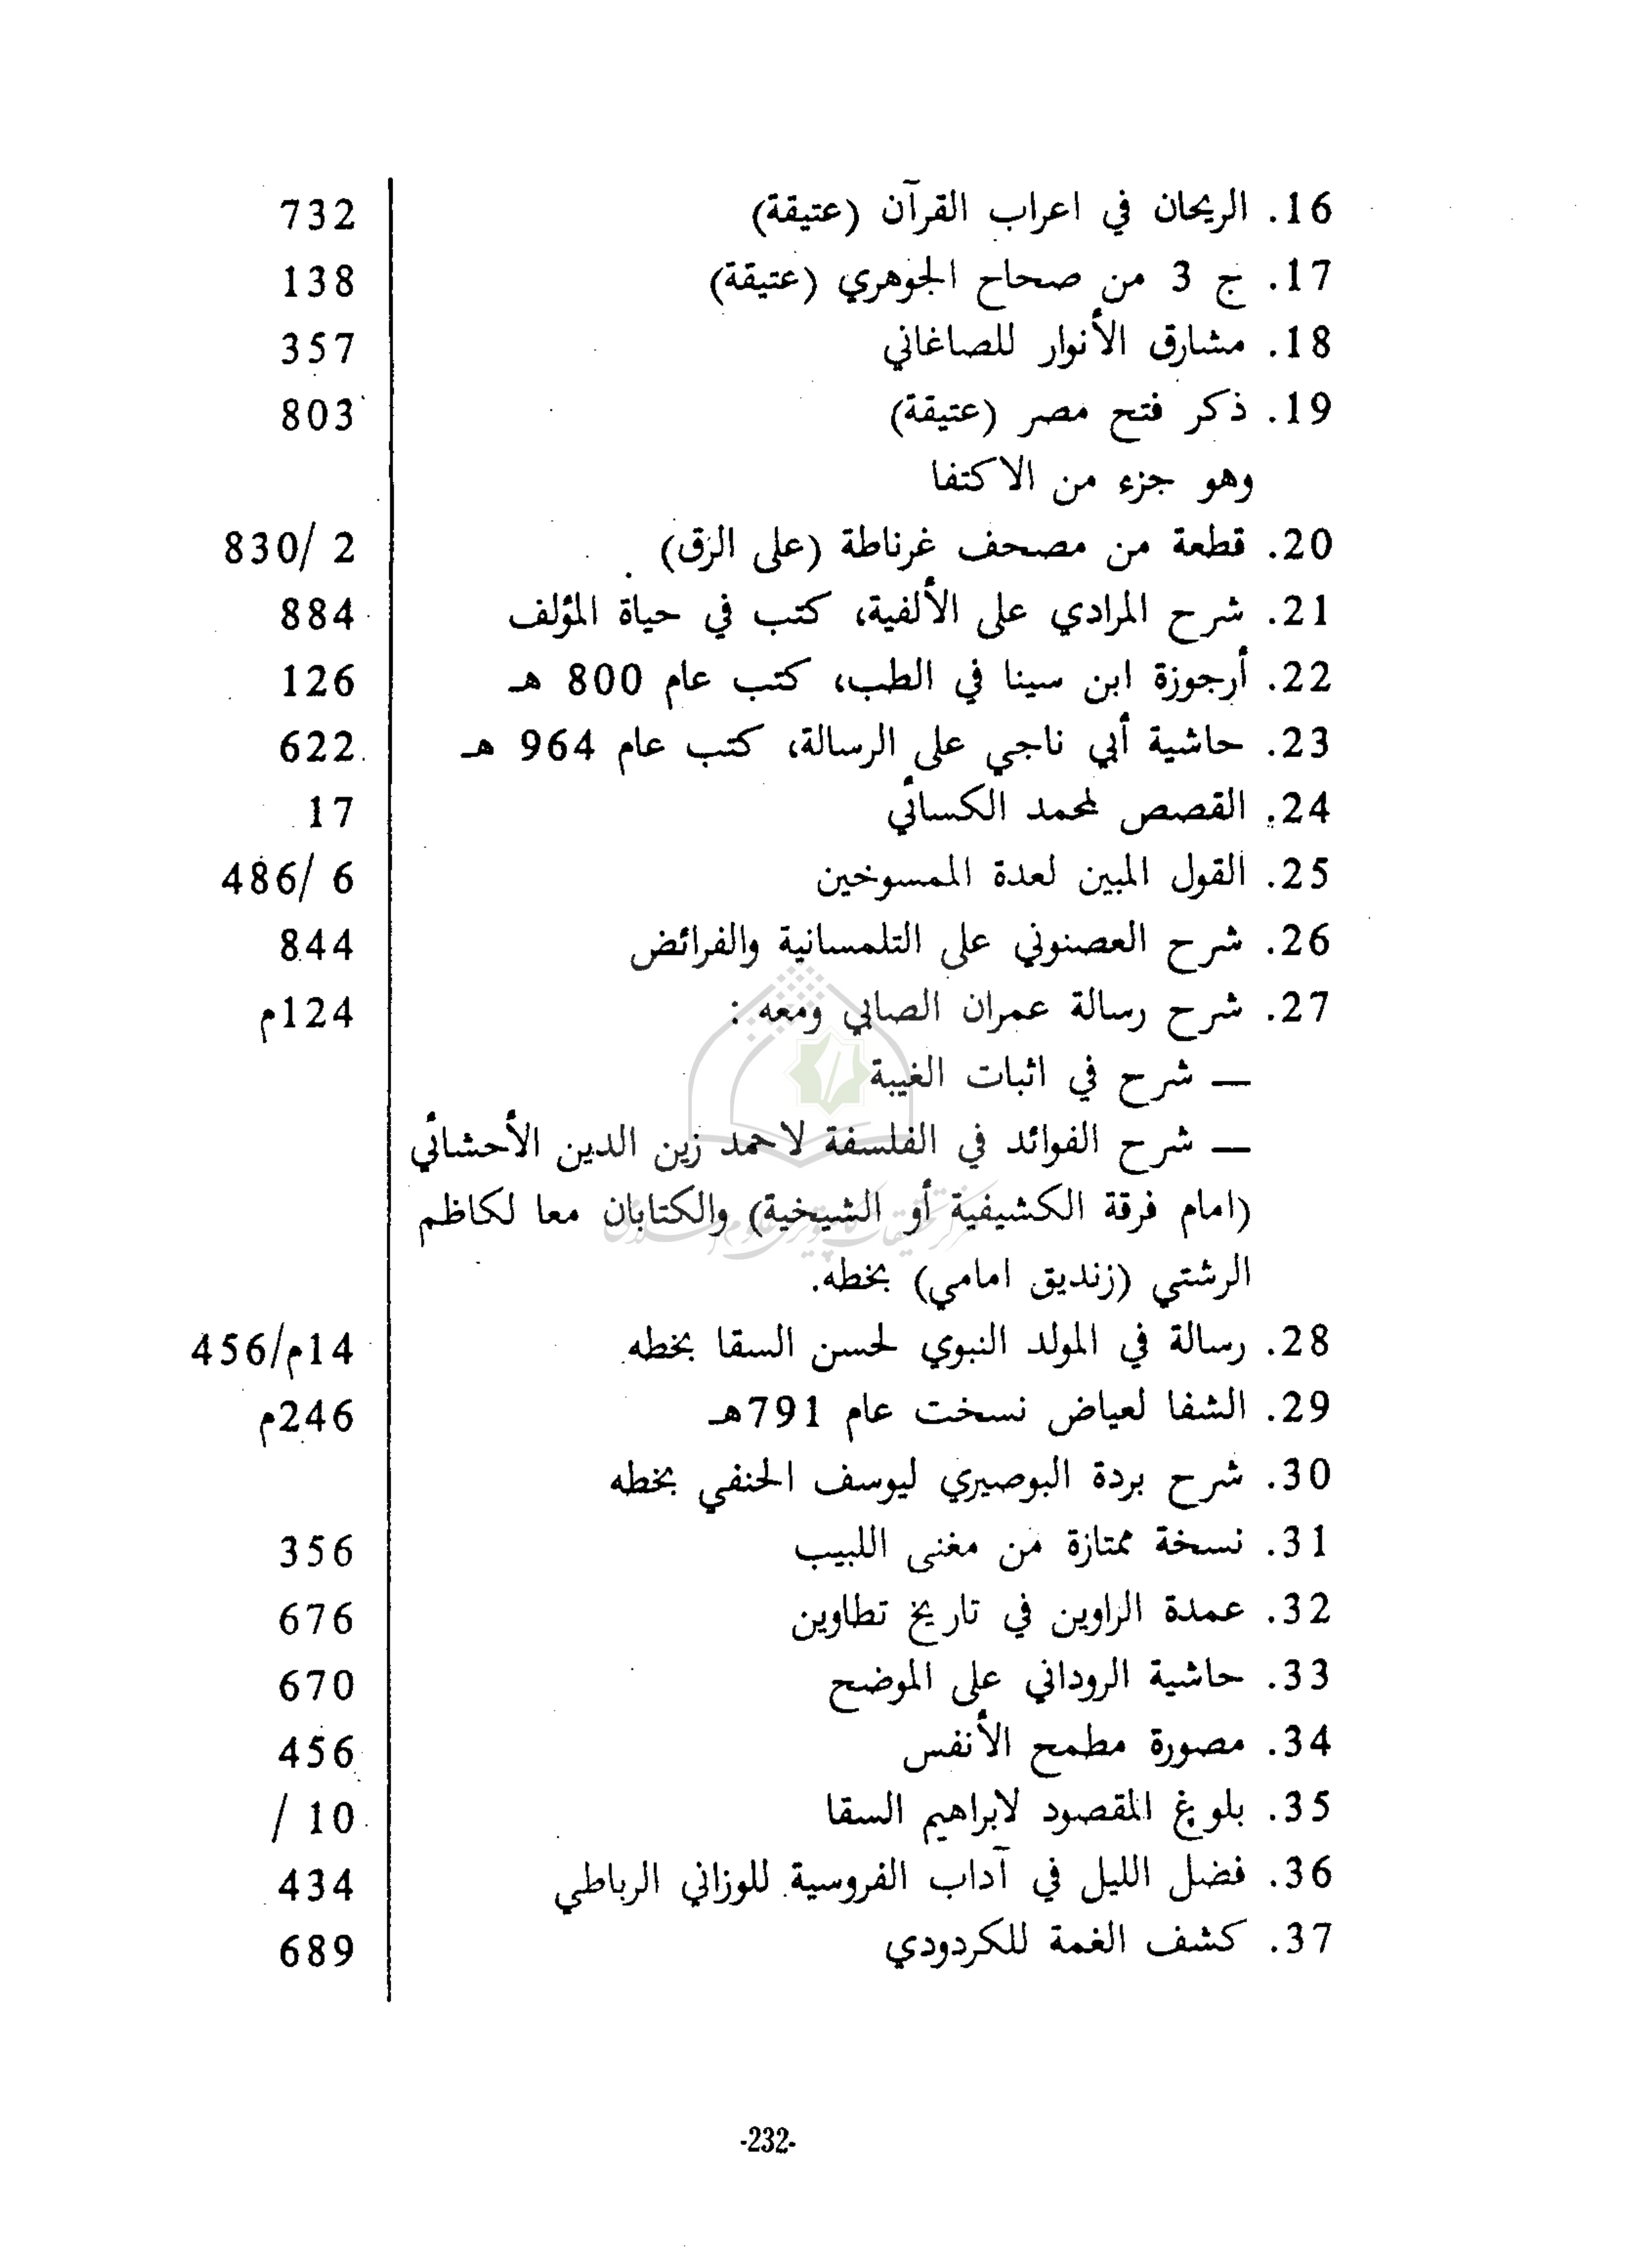 16. الريحان في اعراب القرآن (عتيقة) 732
17. ج 3 من صحاح الجوهري (عتيقة) 138
18. مشارق الأنوار للصاغاني 357
19. ذكر فتح مصر (عتيقة) 803
وهو جزء من الاكتفا
20. قطعة من مصحف غرناطة (على الرق) 2 /830
21. شرح المرادي على الألفية، كتب في حياة المؤلف 884
22. أرجوزة ابن سينا في الطب، كتب عام 800 هـ 126
23. حاشية أبي ناجي على الرسالة، كتب عام 964 هـ 622
24. القصص لمحمد الكسائي 17
25. القول المبين لعدة الممسوخين 6 /486
26. شرح العصنوني على التلمسانية والفرائض 844
27. شرح رسالة عمران الصابي ومعه : 124م
— شرح في اثبات الغيبة
— شرح الفوائد في الفلسفة لاحمد زين الدين الأحشائي
(امام فرقة الكشيفية أو الشيخية) والكتابان معا لكاظم
الرشتي (زنديق امامي) بخطه.
28. رسالة في المولد النبوي لحسن السقا بخطه 14م/456
29. الشفا لعياض نسخت عام 791هـ 246م
30. شرح بردة البوصيري ليوسف الحنفي بخطه
31. نسخة ممتازة من مغنى اللبيب 356
32. عمدة الراوين في تاريخ تطاوين 676
33. حاشية الروداني على الموضح 670
34. مصورة مطمح الأنفس 456
35. بلوغ المقصود لابراهيم السقا 10 /
36. فضل الليل في آداب الفروسية للوزاني الرباطي 434
37. كشف الغمة للكردودي 689
-232-